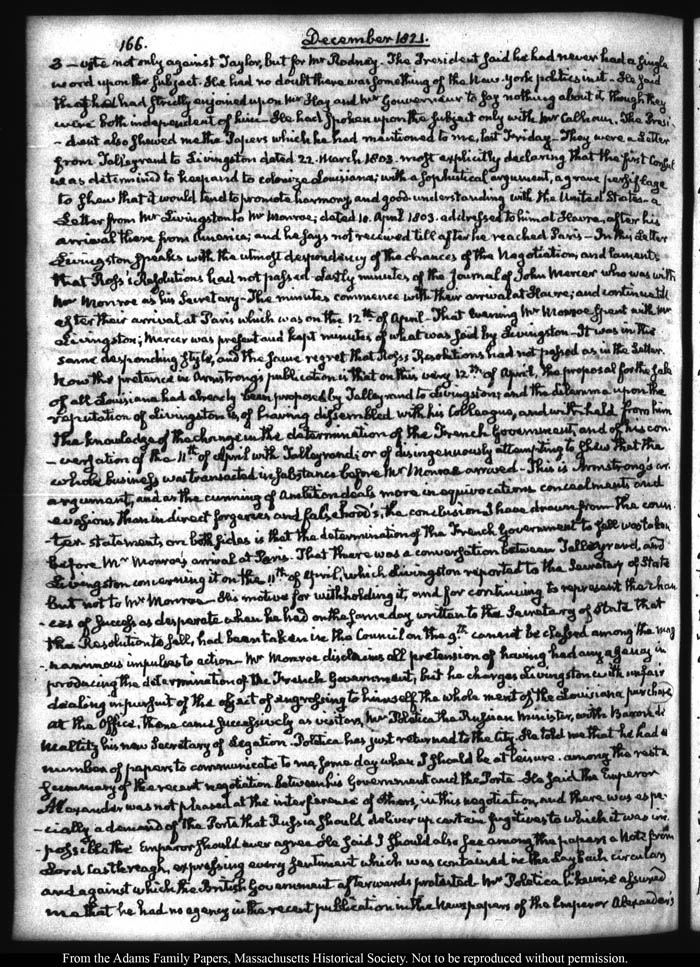 166. December 1821.
3 - vote not only against Taylor, but for Mr Rodney. The President said he had never had a single
word upon the subject. He had no doubt there was something of the New-York politics in it - He said
that he had strictly enjoined upon Mr Hay and Mr Gouverneur to say nothing about it, though they
were both independent of him - He had spoken upon the subject only with Mr Calhoun. The Presi-
-dent also shewed me the Papers which he had mentioned to me, last Friday - They were a Letter
from Talleyrand to Livingston dated 22. March 1803. most explicitly declaring that the first Consul
was determined to keep and to colonize Louisiana; with a sophistical argument, a grave persiflage
to shew that it would tend to promote harmony and good understanding with the United States - a
Letter from Mr Livingston to Mr Monroe; dated 10. April 1803. addressed to him at Havre, after his
arrival there from America; and he says not received till after he reached Paris - In this Letter
Livingston speaks with the utmost despondency of the chances of the Negotiation, and laments
that Ross's Resolutions had not passed - Lastly minutes of the Journal of John Mercer who was with
Mr Monroe as his Secretary - The minutes commence with their arrival at Havre; and continue till
after their arrival at Paris which was on the 12th of April - That Evening Mr Monroe spent with Mr
Livingston; Mercer was present and kept minutes of what was said by Livingston - It was in the
same desponding style, and the same regret that Ross's Resolutions had not passed as in the Letter.
Now the pretence in Armstrong's publication is that on this very 12th of April, the proposal for the sale
of all Louisiana had already been proposed by Talleyrand to Livingston; and the dilemma upon the
reputation of Livingston is, of having dissembled with his Colleague, and withheld from him
the knowledge of the change in the determination of the French Government, and of his con-
-versation of the 11th of April with Talleyrand; or of disingenuously attempting to shew that the
whole business was transacted in substance before Mr Monroe arrived - This is Armstrong's
argument, and as the cunning of Ambition deals more in equivocations concealments and
evasions than in direct forgeries and falsehoods, the conclusion I have drawn from the coun-
ter statements, on both sides is that the determination of the French Government to sell was taken,
before Mr Monroe's arrival at Paris. That there was a conversation between Talleyrand, and
Livingston concerning it on the 11th of April, which Livingston reported to the Secretary of State
but not to Mr Monroe - His motive for withholding it, and for continuing to represent the chan-
-ces of success as desperate when he had on the same day written to the Secretary of State that
the Resolution to sell, had been taken in the Council on the 9th cannot be classed among the mag-
-nanimous impulses to action - Mr Monroe disclaims all pretension of having had any agency in
producing the determination of the French Government; but he charges Livingston with unfair
dealing in pursuit of the object of engrossing to himself the whole merit of the Louisiana purchase
At the Office, there came successively as visitors, Mr Poletica the Russian Minister, with Baron de
Maltitz his new Secretary of Legation. Poletica has just returned to the City. He told me that he had a
number of papers to communicate to me some day when I should be at leisure. among the rest a
summary of the recent negotiation between his Government and the Porte. He said the Emperor
Alexander was not pleased at the interference of others, in this negotiation, and there was espe-
-cially a demand of the Porte that Russia should deliver up certain fugitives to which it was im-
-possible the Emperor should ever agree. He said I should also see among the papers a Note from
Lord Castlereagh, expressing every sentiment which was contained in the Laybach circular,
and against which the British Government afterwards protested. Mr Poletica likewise assured
me that he had no agency in the recent publication in the Newspapers of the Emperor Alexander's
From the Adams Family Papers, Massachusetts Historical Society. Not to be reproduced without permission.